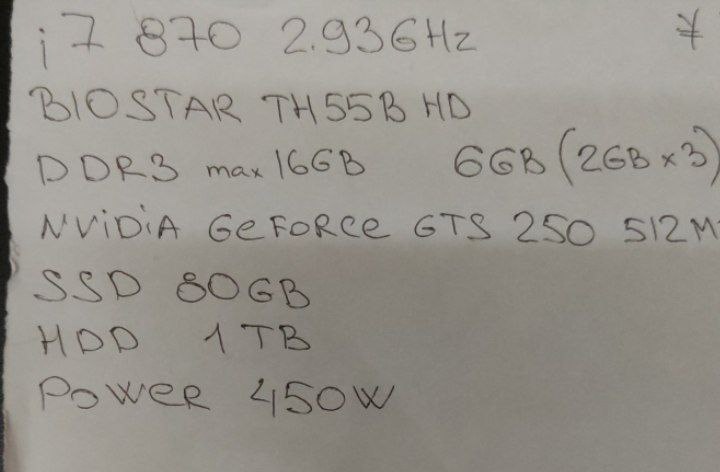 i7 870 2.93GHz ¥
BIOSTAR TH55B HD
DDR3 max 16GB 6GB (2GB x 3)
NViDiA GeFORCe GTS 250 512M
SSD 80GB
HDD 1TB
POWER 450W